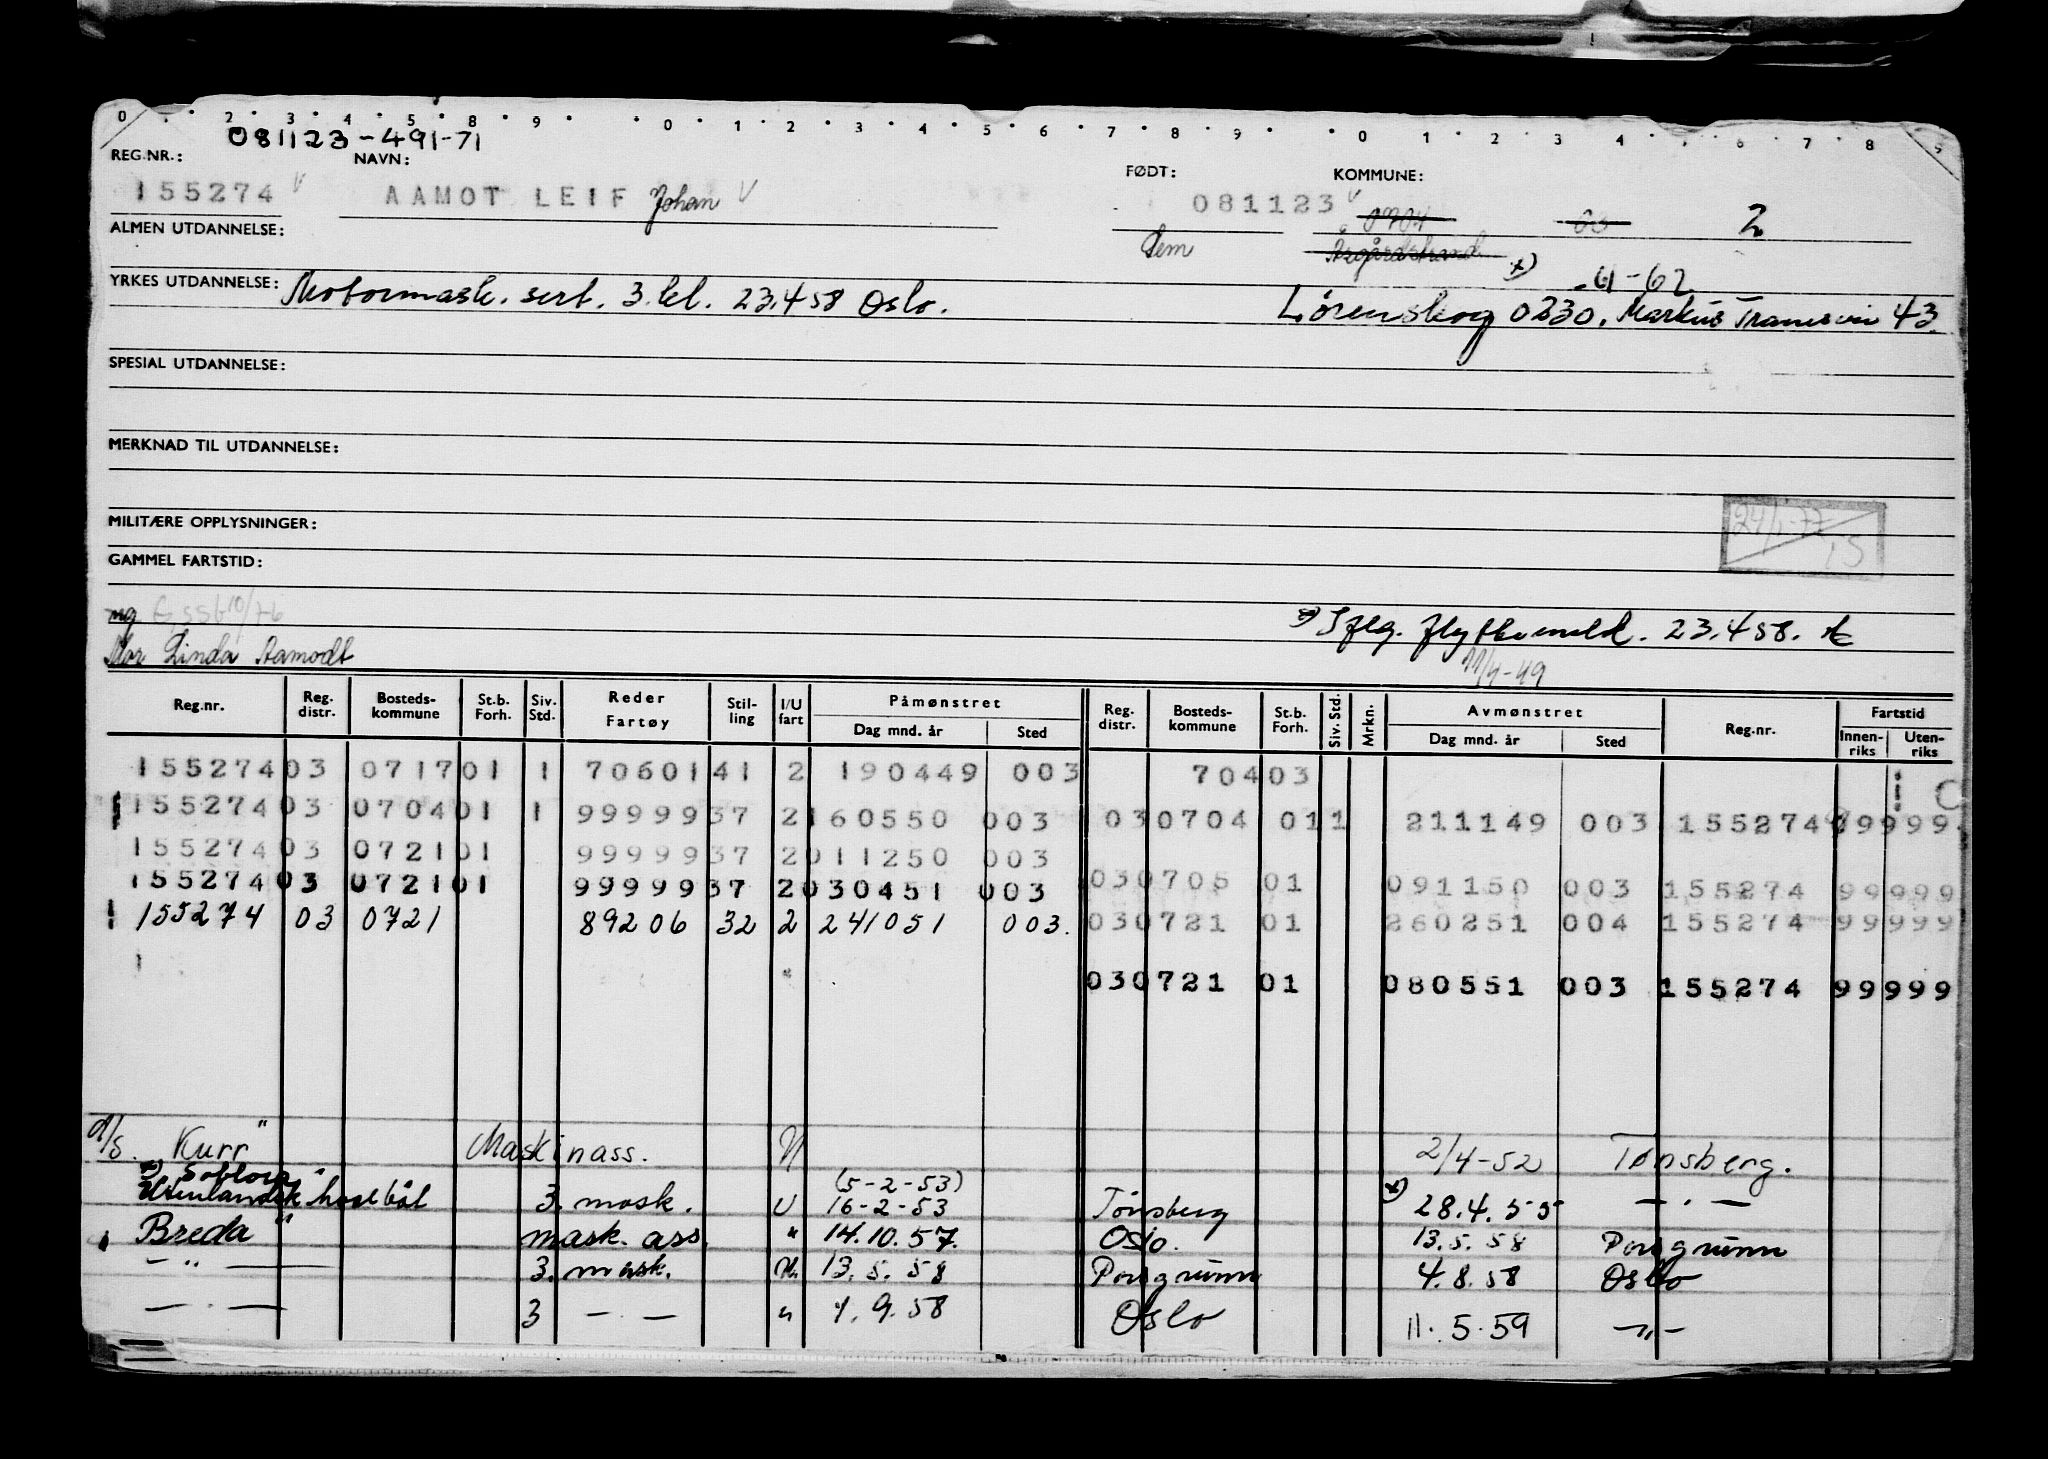 0 . . 2 . 3 . 4 . 5 . 8 . 9 . . 0 . 1 . 2 . 3 . 4 . 5 . 6 . 7 . 8 . 9 . . 0 . 1 . 2 . 3 . 4 . . 6 . 7 . 8 9
081123-491-71
REG.NR.: NAVN: FØDT: KOMMUNE:
155274 AAMOT LEIF Johan 081123 0704 2
ALMEN UTDANNELSE: Sem Åsgårdstrand x)
61-62
YRKES UTDANNELSE: Motormask. sert. 3. kl. 23.4 58 Oslo. Lørenskog 0230, Markus Thranes vei 43
SPESIAL UTDANNELSE:
MERKNAD TIL UTDANNELSE:
MILITÆRE OPPLYSNINGER: 24/1-77
GAMMEL FARTSTID:
x) Iflg. flyttemeld. 23.4 58.
Mor Linda Aamodt
11/4-49
Reg.nr. Reg. distr. Bosteds-kommune St.b. Forh. Siv. Std. Reder Fartøy Stil-ling I/U fart Påmønstret Dag mnd. år Sted Reg. distr. Bosteds-kommune St.b. Forh. Siv. Std. Mrkn. Avmønstret Dag mnd. år Sted Reg.nr. Fartstid Innen-riks Uten-riks
155274 03 0717 01 1 70601 41 2 190449 003 70403
155274 03 0704 01 1 99999 37 2 160550 003 03 0704 01 1 211149 003 155274 99999
155274 03 0721 01 99999 37 2 011250 003
155274 03 0721 01 99999 37 2 030451 003 03 0705 01 091150 003 155274 99999
155274 03 0721 89206 32 2 241051 003. 03 0721 01 260251 004 155274 99999
03 0721 01 080551 003 155274 99999
d/s. "Kurr" Maskinass. N 2/4-52 Tønsberg.
(5-2-53)
Utenlandsk hvalbåt 3. mask. U 16-2-53 Tønsberg x) 28.4.55 — . —
Breda" mask. ass. " 14.10.57. Oslo. 13.5.58 Porsgrunn
— " — 3. mask. 13.5.58 Porsgrunn 4.8.58 Oslo
— . — 3 — . — " 1.9.58 Oslo 11.5.59 — " —